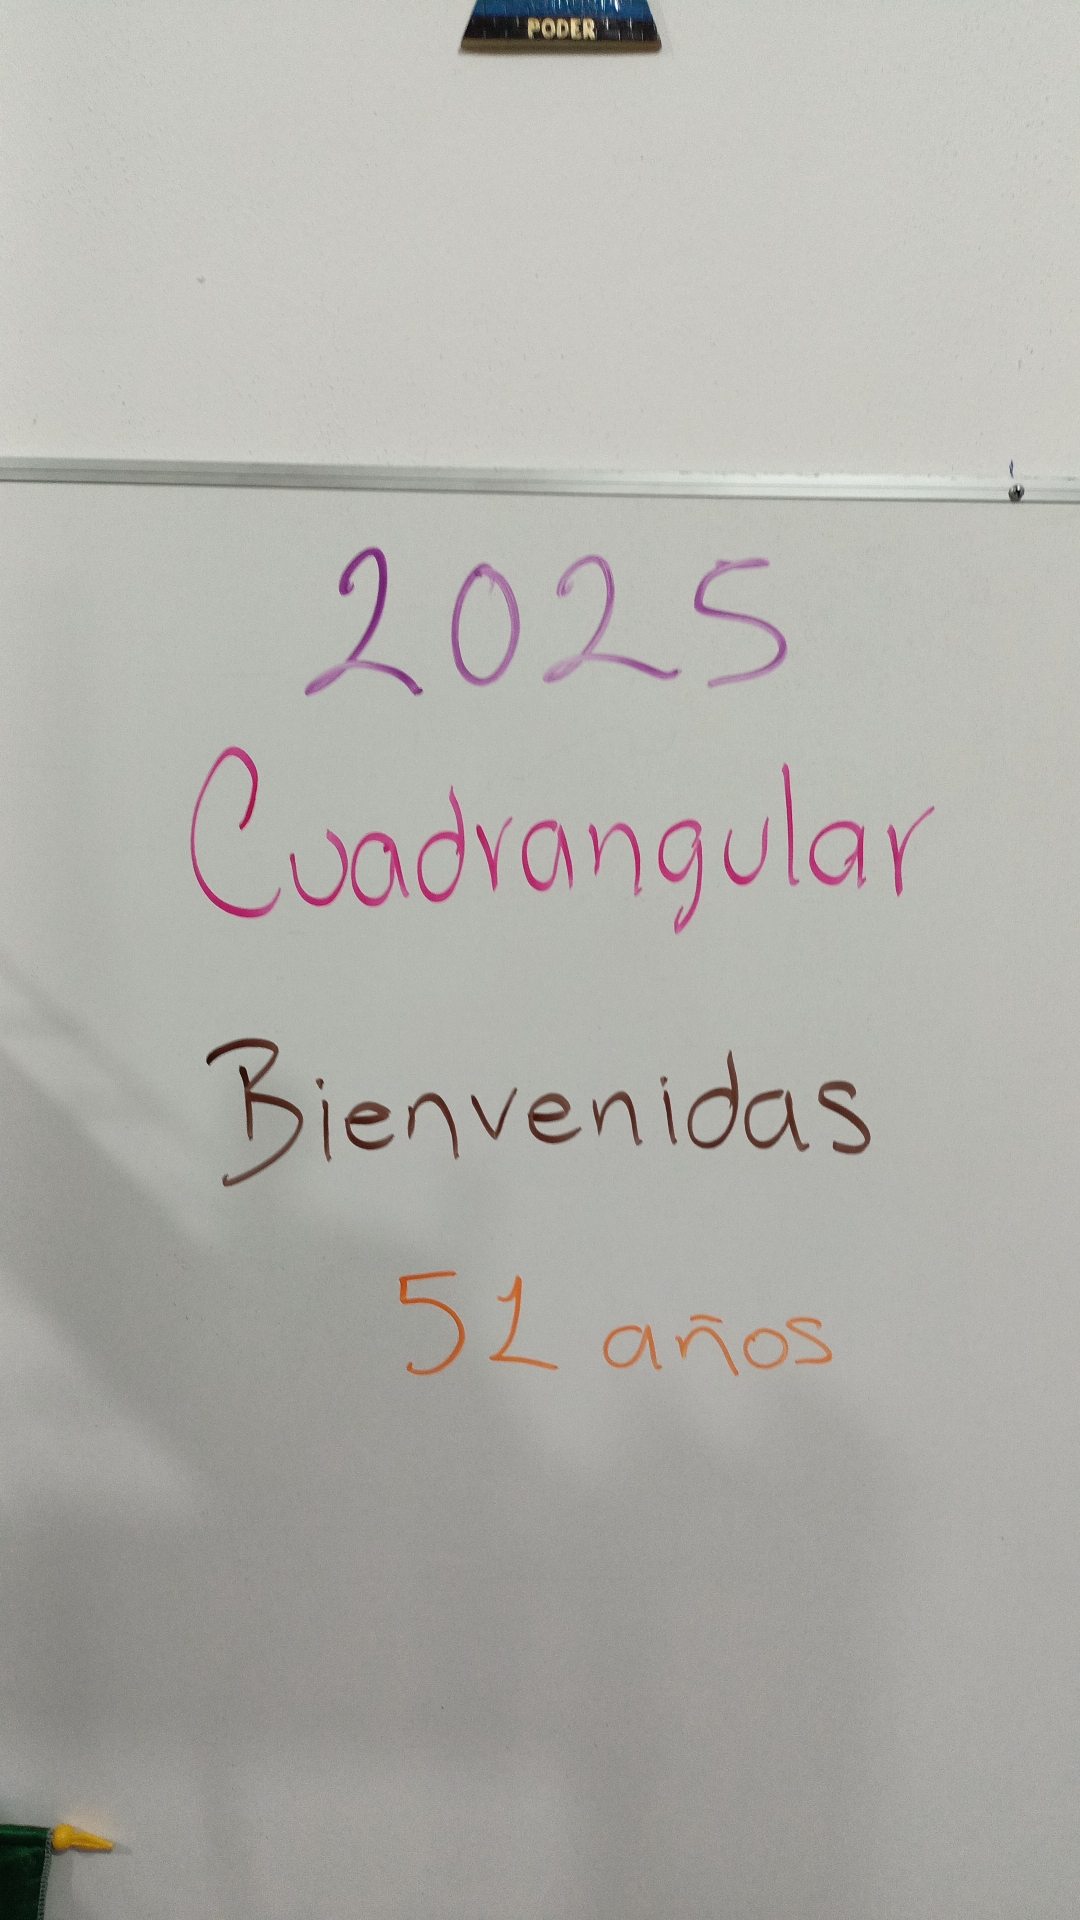 PODER
2025
Cuadrangular
Bienvenidas
51 años